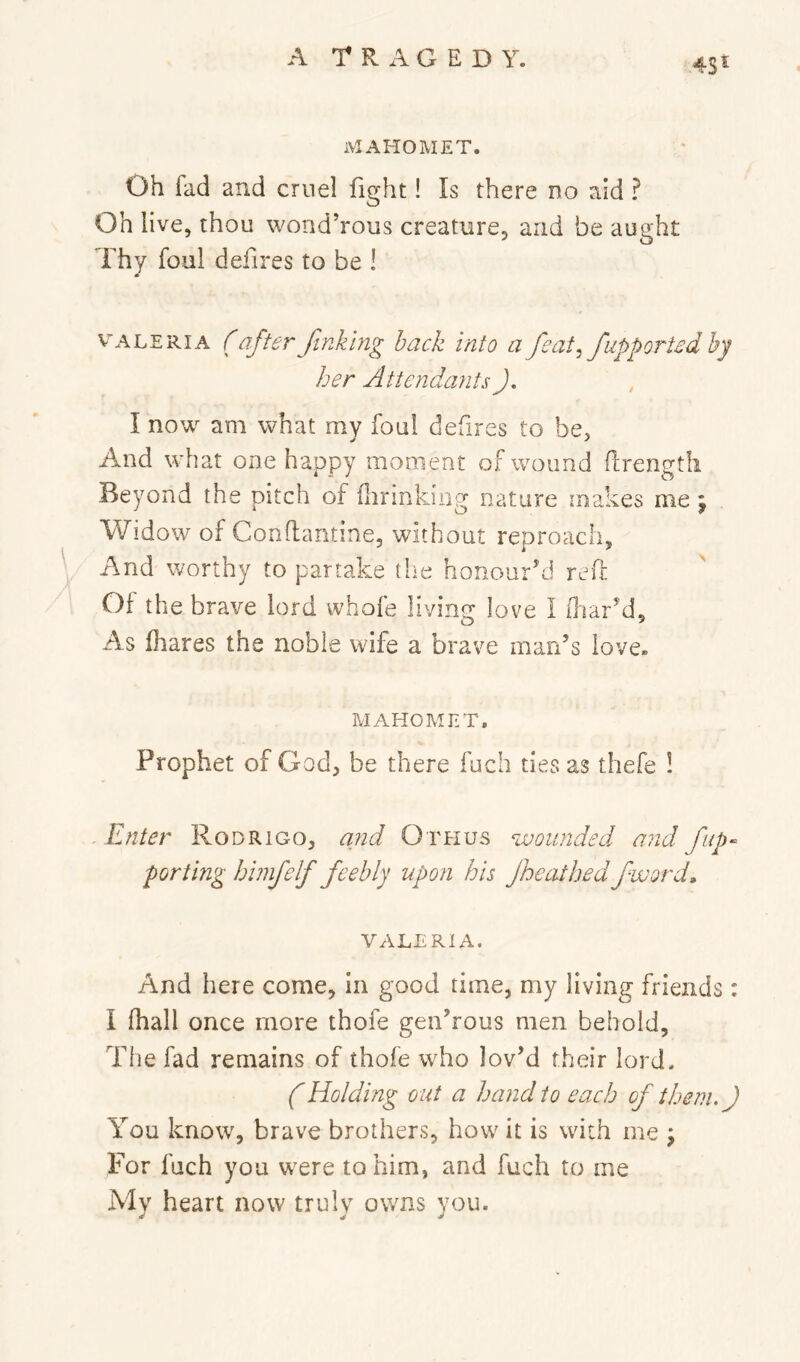 A TRAGEDY.
431
MAHOMET.
Oh ſad and cruel ſight! Is there no aid?
Oh live, thou wond'rous creature, and be aught
Thy ſoul deſires to be!
VALERIA (after ſinking back into a ſeat, ſupported by
her Attendants).
I now am what my ſoul deſires to be,
And what one happy moment of wound ſtrength
Beyond the pitch of ſhrinking nature makes me;
Widow of Conſtantine, without reproach,
And worthy to partake the honour'd reſt
Of the brave lord whoſe living love I ſhar'd,
As ſhares the noble wife a brave man's love.
MAHOMET.
Prophet of God, be there ſuch ties as theſe!
Enter RODRIGO, and OTHUS wounded and ſup-
porting himſelf feebly upon his ſheathed ſword.
VALERIA.
And here come, in good time, my living friends:
I ſhall once more thoſe gen'rous men behold,
The ſad remains of thoſe who lov'd their lord.
(Holding out a hand to each of them.)
You know, brave brothers, how it is with me;
For ſuch you were to him, and ſuch to me
My heart now truly owns you.